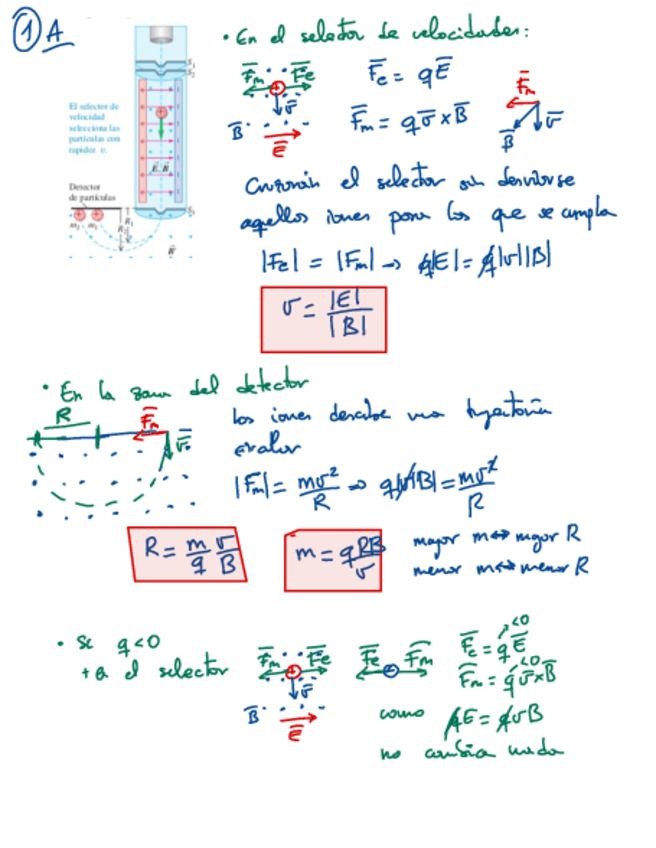 ① A
El selector de
velocidad
selecciona las
partículas con
rapidez v.
S₁
S₂
E, B
Detector
de partículas
S₃
m₂ m₁
R₁
R₂
B
• En el selector de velocidades:
F̅m F̅e
v̅
B̅
E̅
F̅e = qE̅
F̅m = q v̅ x B̅
F̅m
v̅
B̅
Cruzarán el selector sin desviarse
aquellos iones para los que se cumpla
|Fe| = |Fm| → q|E| = q|v||B|
v = |E| / |B|
• En la zona del detector
R
F̅m
v̅
los iones describe una trayectoria
circular
|Fm| = mv²/R ⇒ q|v||B| = mv²/R
R = m/q v/B
m = q RB/v
mayor m ↔ mayor R
menor m ↔ menor R
• Si q<0
+ en el selector
F̅m F̅e
v̅
B̅
E̅
F̅e F̅m
F̅e = q E̅
<0
F̅m = q v̅ x B̅
<0
como qE = qvB
no cambia nada